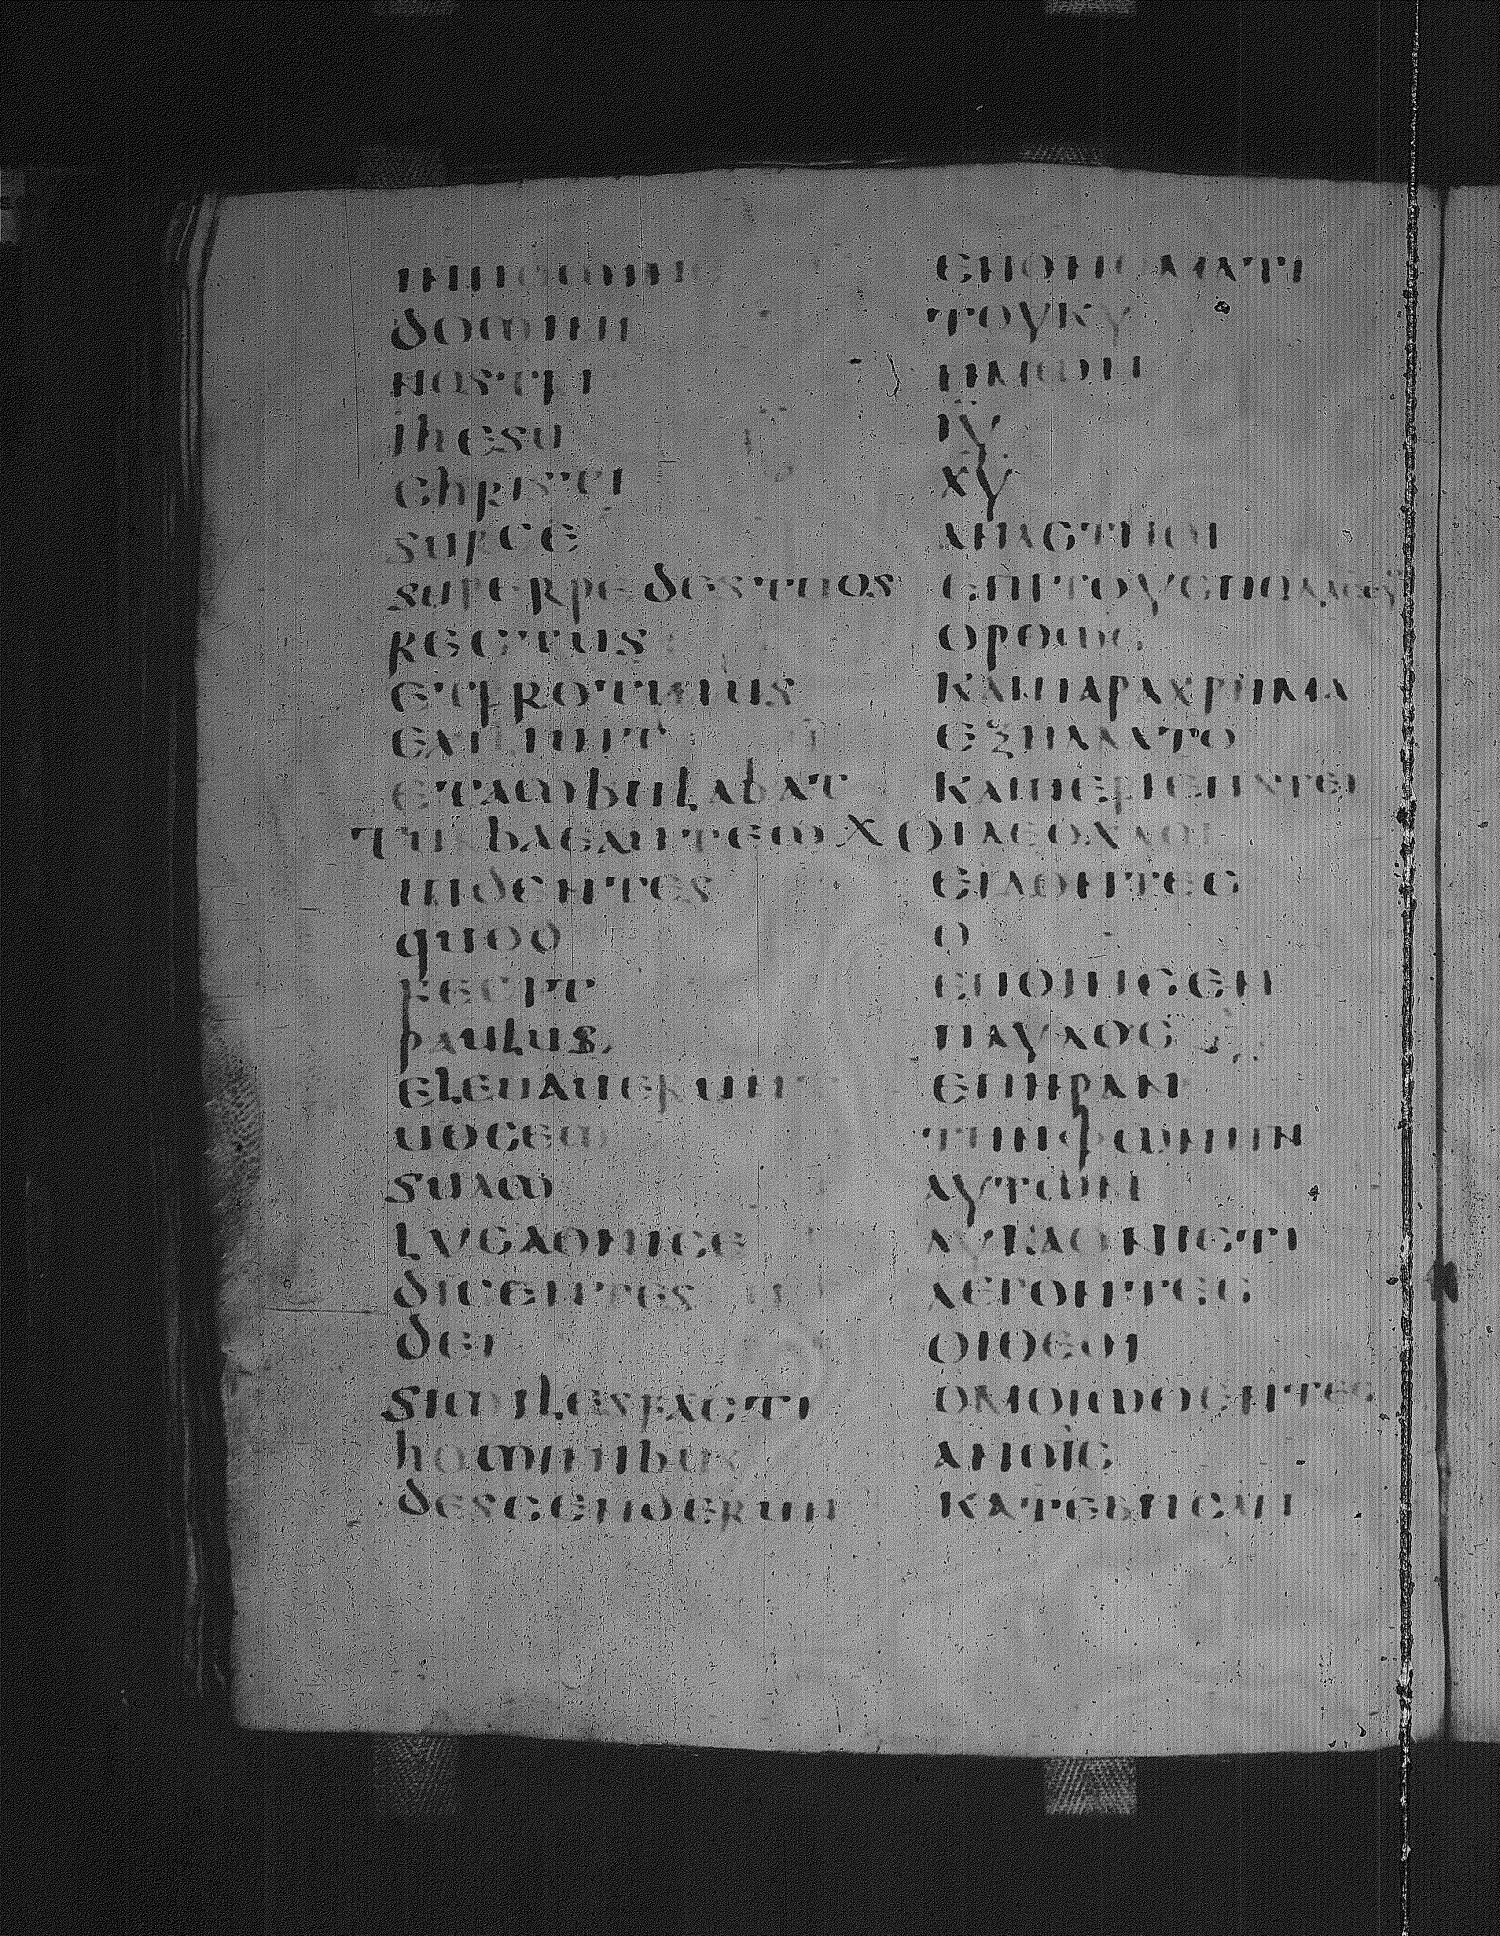 innomine
domini
nostri
ihesu
christi
surge
superpedestuos
rectus
etprotinus
exiliuit
etambulabat
turbaeautem
uidentes
quod
fecit
paulus
eleuauerunt
uocem
suam
lycaonice
dicentes
dei
similesfacti
hominibus
descenderun
ΕΝΟΝΟΜΑΤΙ
ΤΟΥΚΥ
ΗΜΩΝ
ΙΥ
ΧΥ
ΑΝΑϹΤΗΘΙ
ΕΠΙΤΟΥϹΠΟΔΑϹϹΟΥ
ΟΡΘΩϹ
ΚΑΙΠΑΡΑΧΡΗΜΑ
ΕΞΗΛΛΑΤΟ
ΚΑΙΠΕΡΙΕΠΑΤΕΙ
ΟΙΔΕΟΧΛΟΙ
ΕΙΔΟΝΤΕϹ
Ο
ΕΠΟΙΗϹΕΝ
ΠΑΥΛΟϹ
ΕΠΗΡΑΝ
ΤΗΝΦΩΝΗΝ
ΑΥΤΩΝ
ΛΥΚΑΟΝΙϹΤΙ
ΛΕΓΟΝΤΕϹ
ΟΙΘΕΟΙ
ΟΜΟΙΩΘΕΝΤΕϹ
ΑΝΟΙϹ
ΚΑΤΕΒΗϹΑΝ